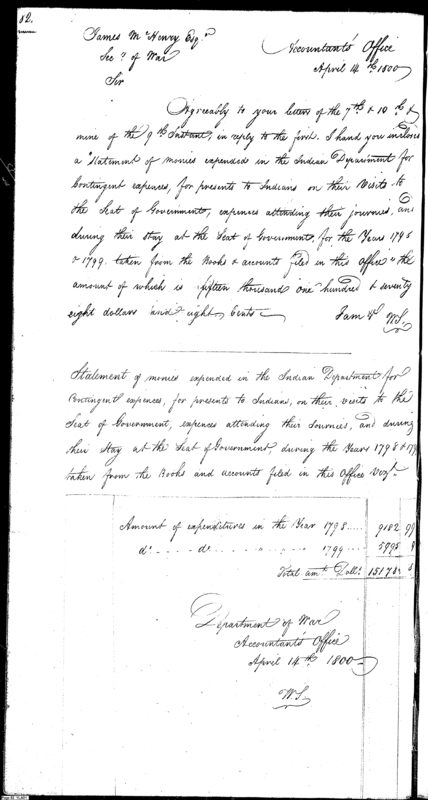 82.
James McHenry Esqr
Secy of War
Sir
Accountant's Office
April 14th 1800
Agreeably to your letters of the 7th & 10th &
mine of the 9th Instant, in reply to the first. I hand you inclosed
a Statement of monies expended in the Indian Department for
Contingent expences, for presents to Indians on their Visits to
the Seat of Government, expences attending their Journeies, and
during their stay at the Seat of Government, for the Years 1798
& 1799. taken from the Books & accounts filed in this Office the
amount of which is fifteen thousand one hundred & seventy
eight dollars and eight Cents
I am &c
W.S.
Statement of monies expended in the Indian Department for
Contingent expences, for presents to Indians, on their visits to the
Seat of Government, expences attending their Journeies, and during
their Stay at the Seat of Government, during the Years 1798 & 179
taken from the Books and accounts filed in this Office Vizt
Amount of expenditures in the Year 1798 .... 9182 99
do . . . . do . . . . 1799 .... 5995
Total amt Dolls 15178
Department of War
Accountant's Office
April 14th 1800
W.S.